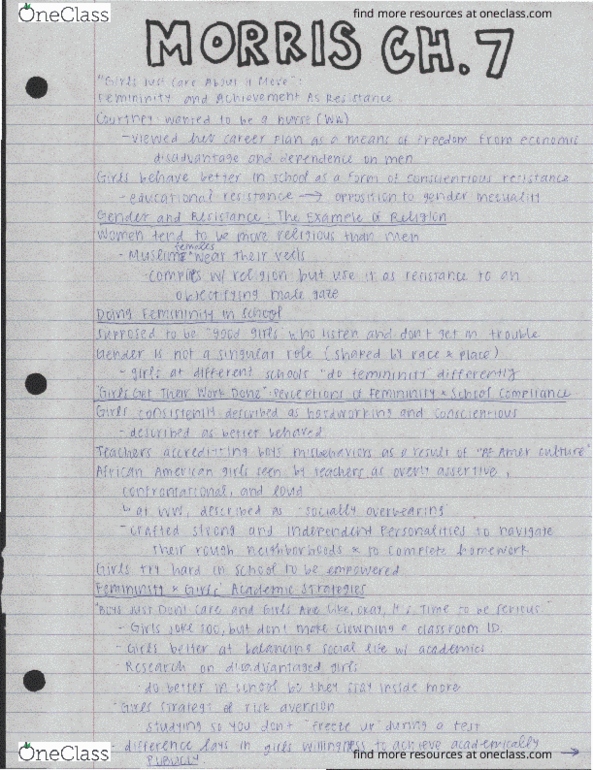 OneClass
find more resources at oneclass.com
MORRIS CH. 7
"Girls Just Care About it More":
Femininity and Achievement As Resistance
Courtney wanted to be a nurse (WR)
- viewed her career plan as a means of freedom from economic
disadvantage and dependence on men
Girls behave better in school as a form of conscientious resistance
- educational resistance → opposition to gender inequality
Gender and Resistance: The Example of Religion
Women tend to be more religious than men
females
- Muslim ^ wear their veils
- complies w/ religion but use it as resistance to an
objectifying male gaze
Doing Femininity in School
supposed to be "good girls" who listen and don't get in trouble
Gender is not a singular role (shaped by race & place)
- girls at different schools "do femininity" differently
"Girls Get Their Work Done": Perceptions of Femininity & School Compliance
Girls consistently described as hardworking and conscientious
- described as better behaved
Teachers accrediting boys misbehaviors as a result of "Af Amer culture"
African American girls seen by teachers as overly assertive,
confrontational, and loud
↳ at WW, described as "socially overbearing
- crafted strong and independent personalities to navigate
their rough neighborhoods & to complete homework
Girls try hard in school to be empowered
Femininity & Girls' Academic Strategies
"Boys Just Dont Care and Girls Are Like, Okay, It's Time to be Serious."
- Girls joke too, but dont make clowning a classroom ID.
- Girls better at balancing social life w/ academics
- Research on disadvantaged girls
- do better in school bc they stay inside more
- Girls strategy of risk aversion
studying so you don't "freeze up" during a test
- difference lays in girls willingness to achieve academically
publicly →
OneClass
find more resources at oneclass.com